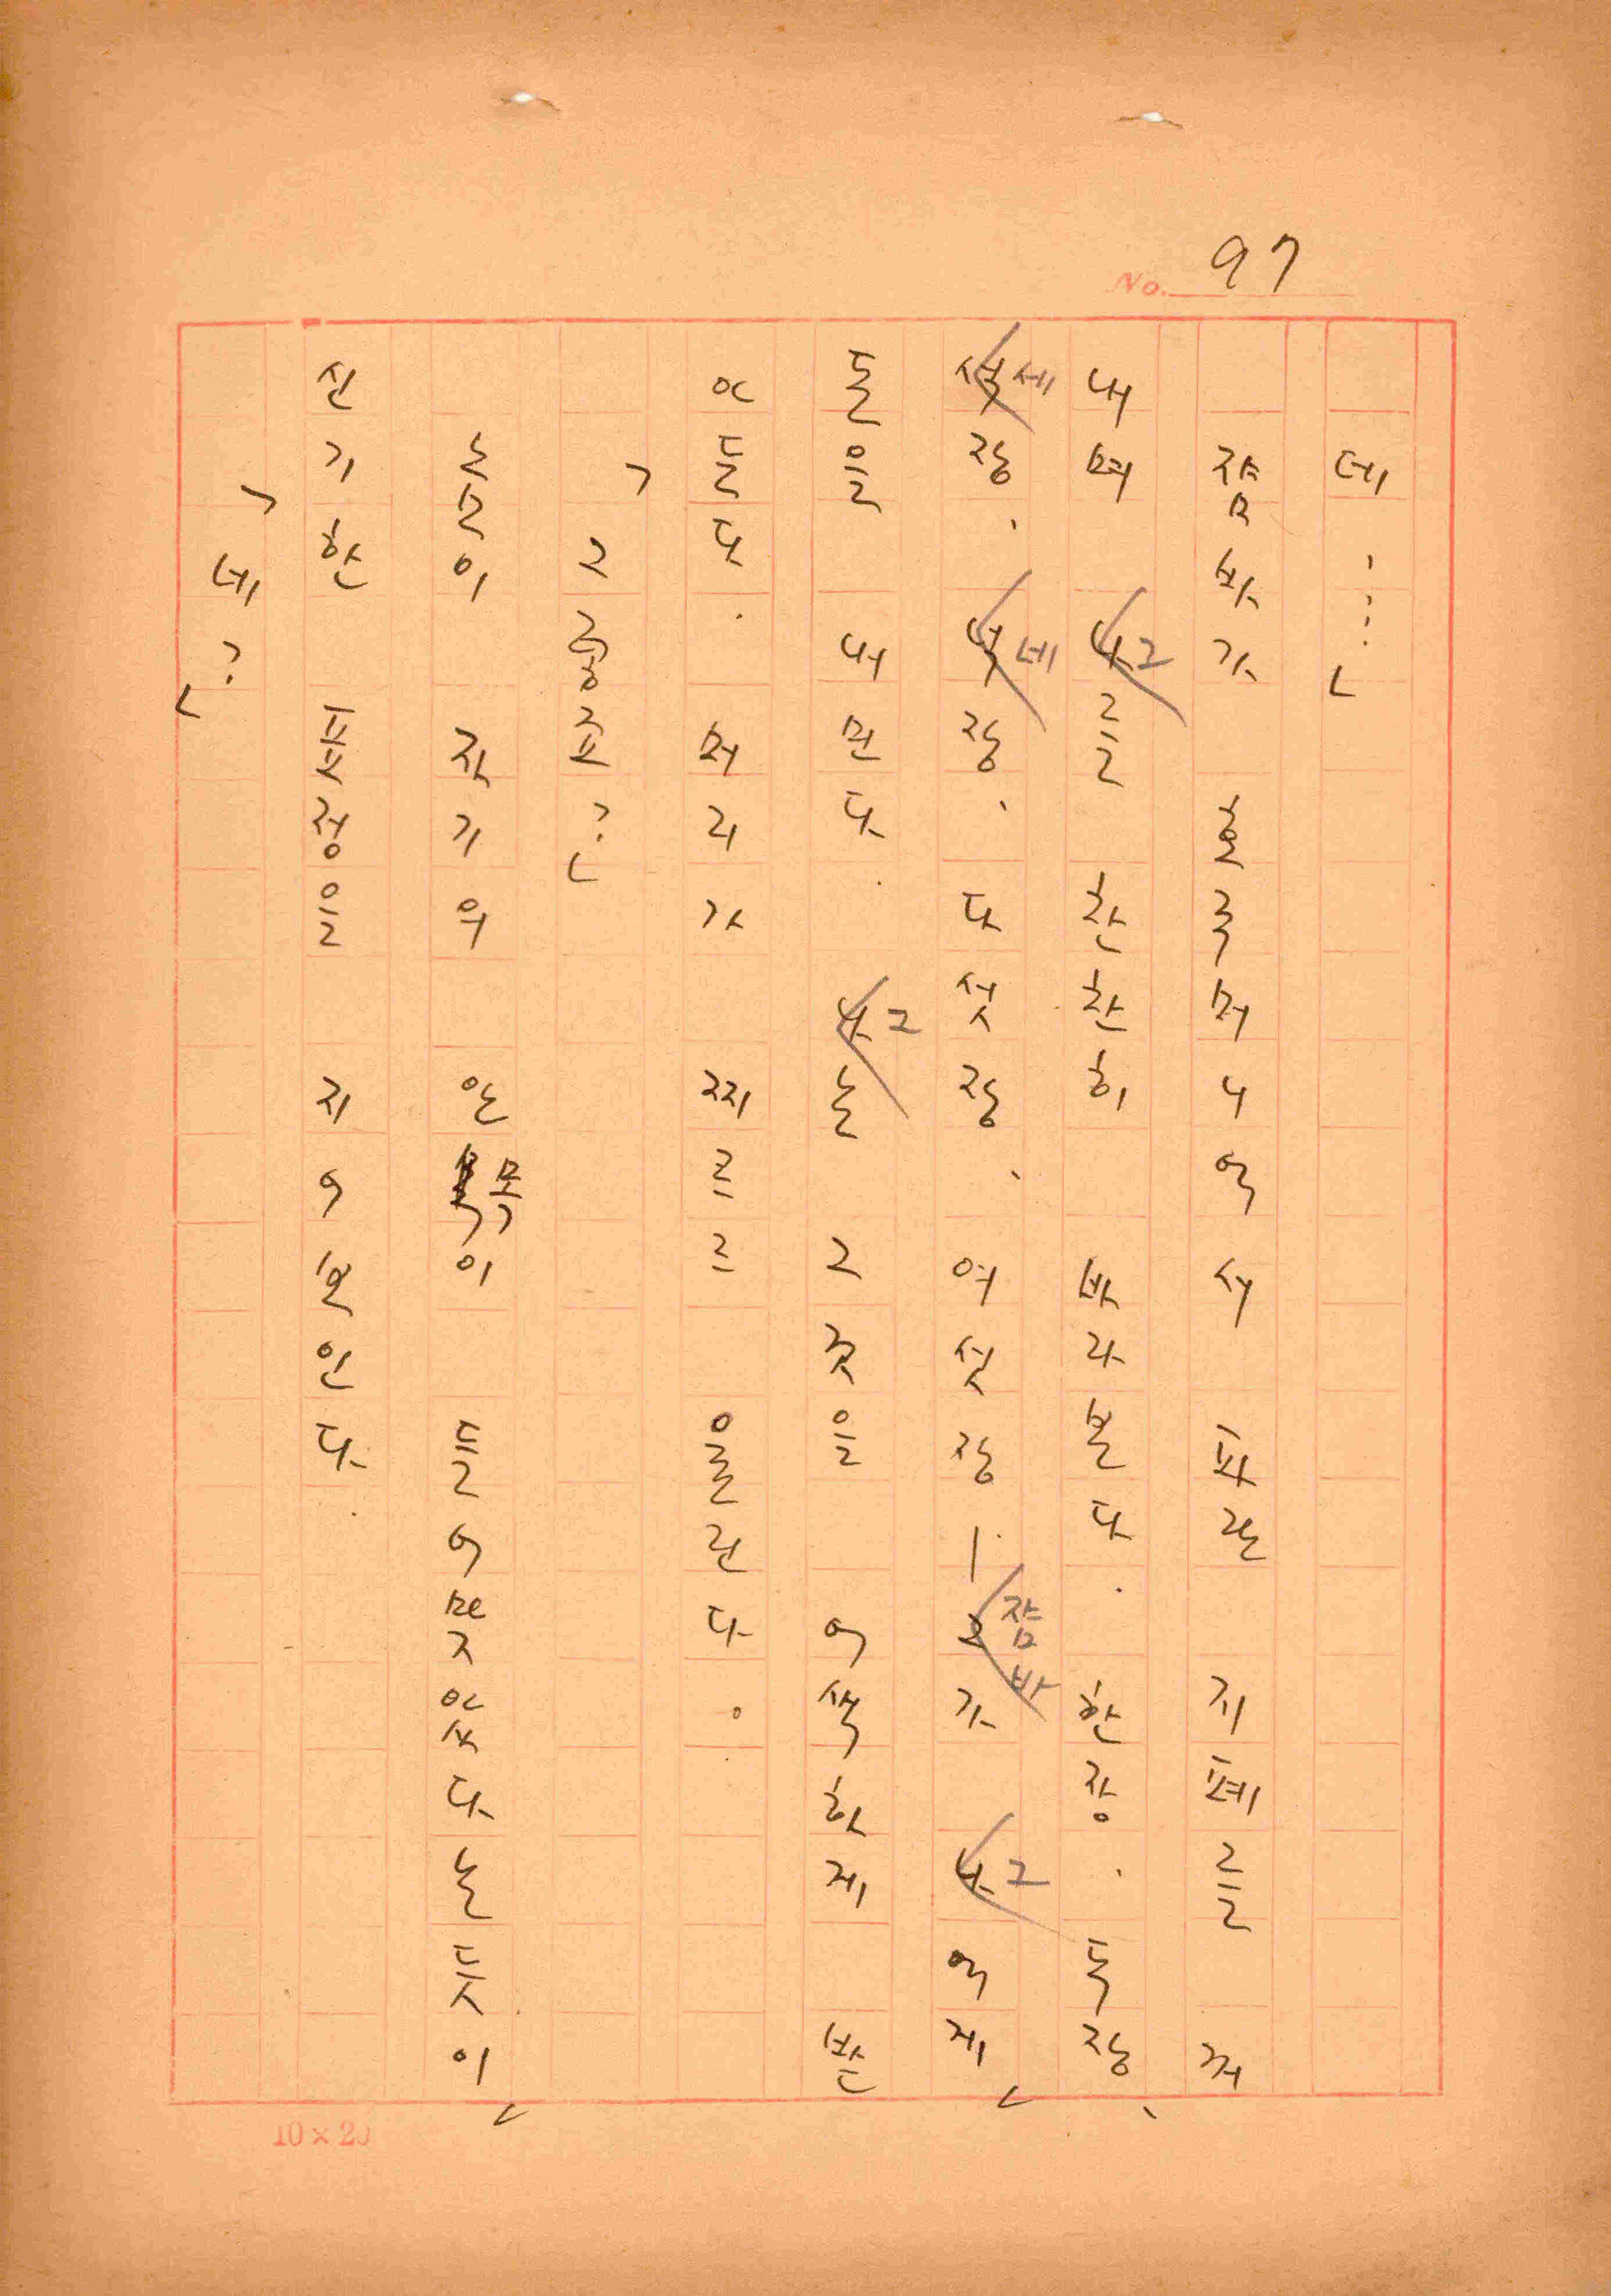 No. 97
데……」
잠바가 호주머니에서 파란 지폐를 꺼
내며 그를 찬찬히 바라본다. 한장. 두장、
세장、네장、다섯장、여섯장— 잠바가 그에게
돈을 내민다. 그는 그것을 어색하게 받
아든다. 머리가 찌르르 울린다。
「그렇죠?」
놈이 자기의 안목이 들어맞았다는듯이
신기한 표정을 지어보인다.
「네?」
10×20